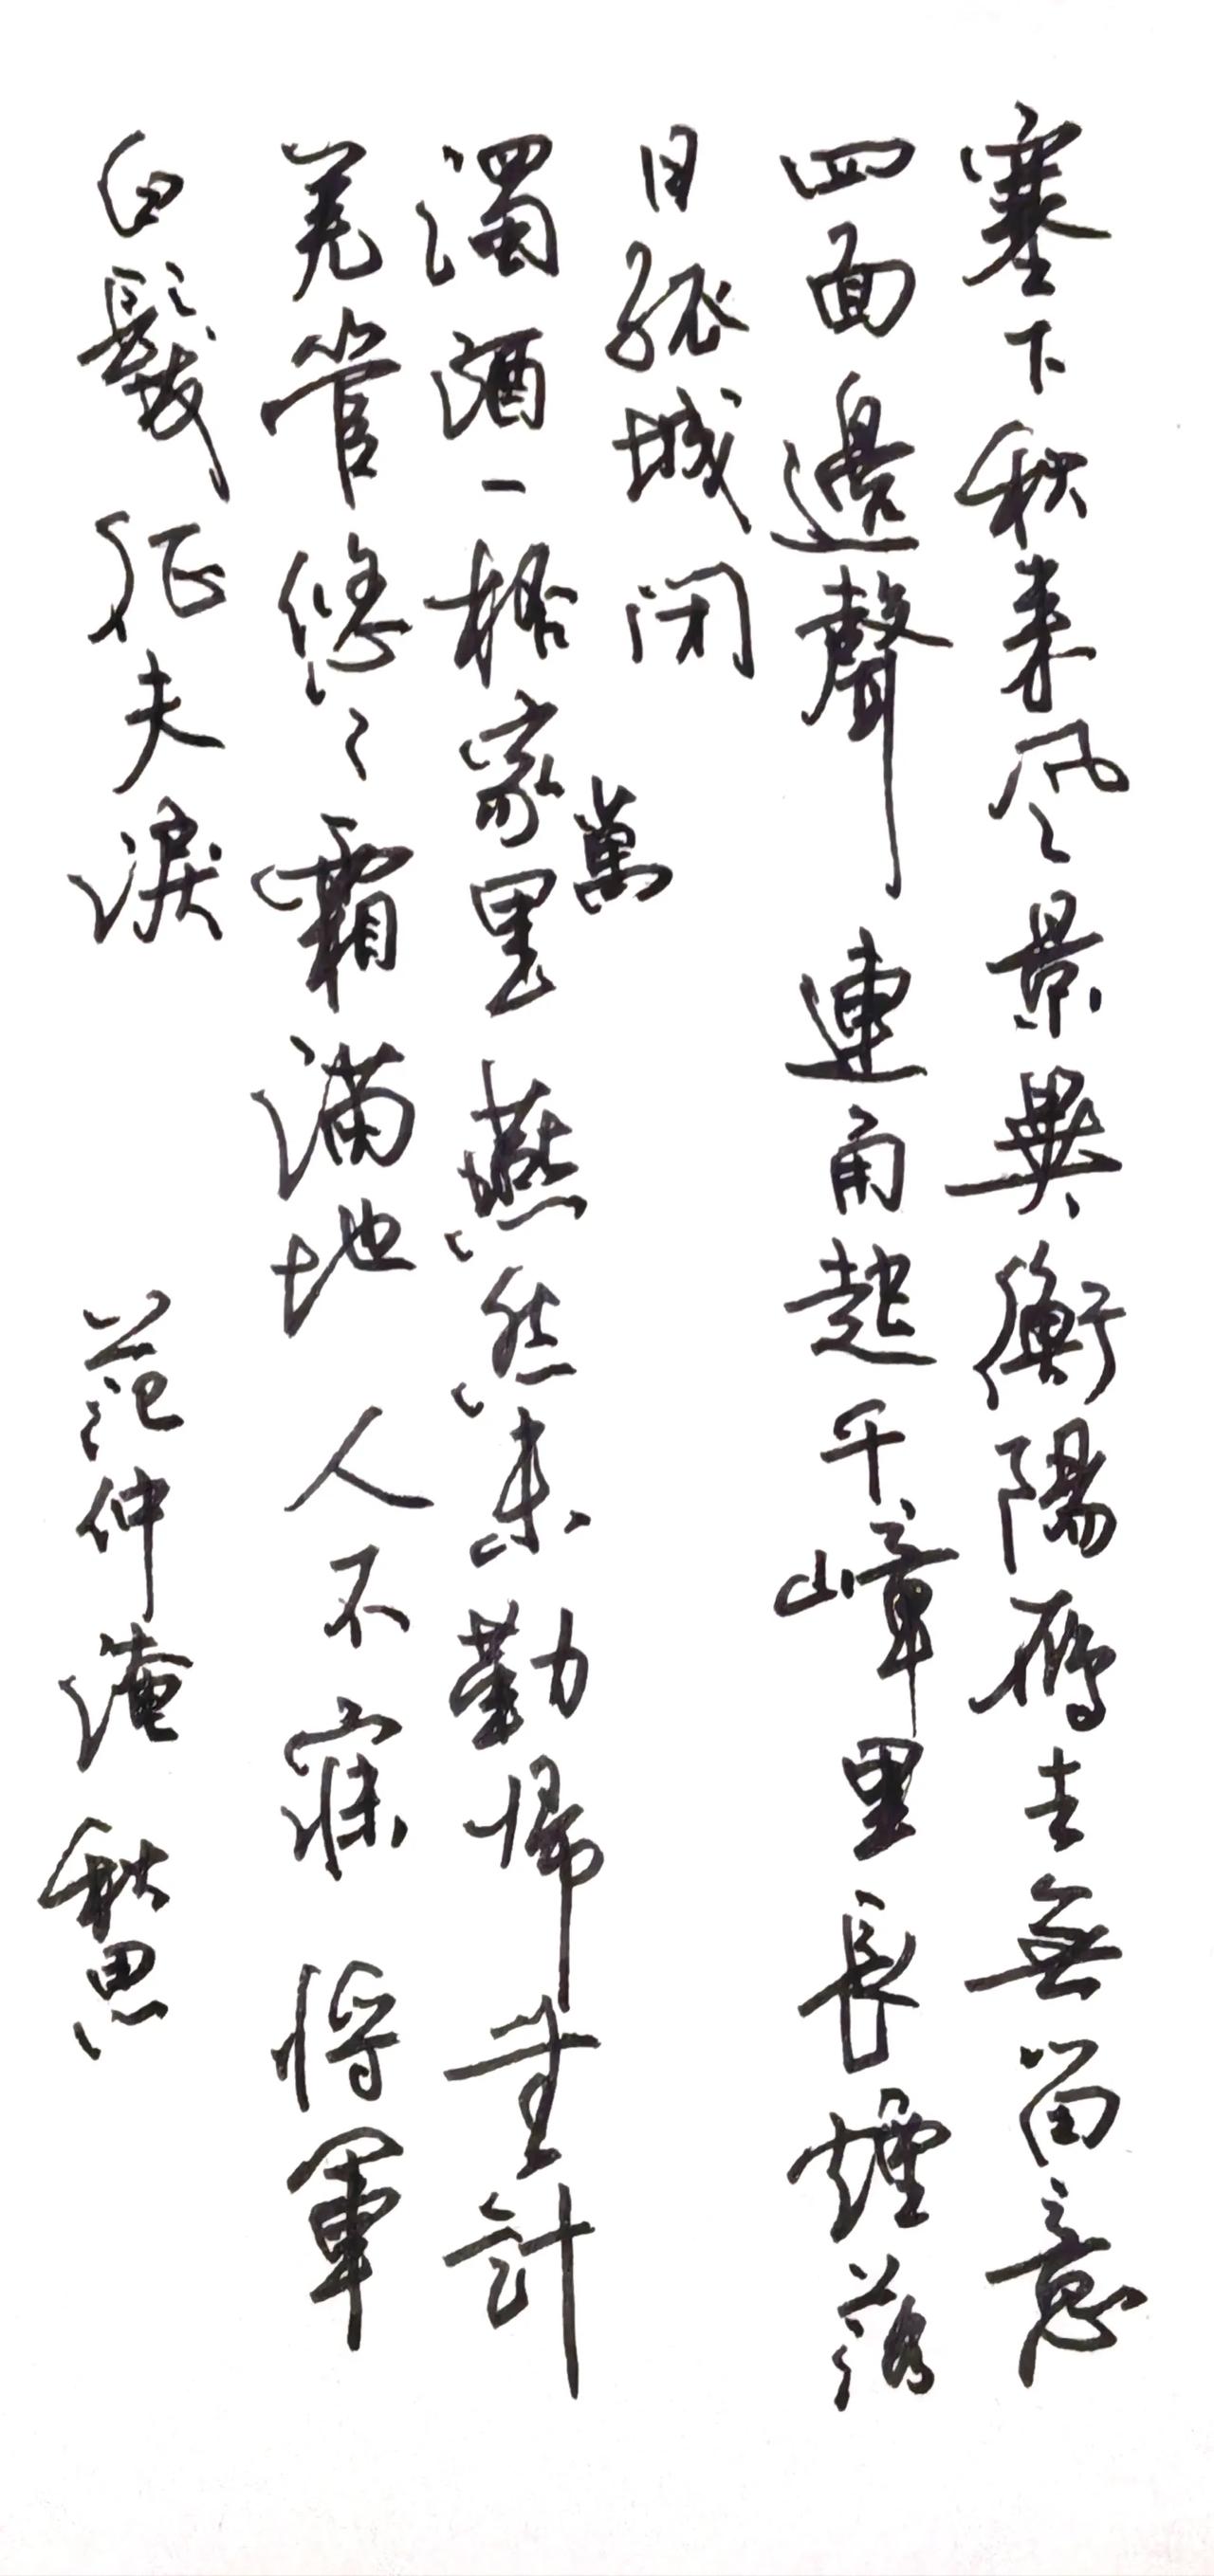 塞下秋来风景異衡陽雁去無留意
四面邊聲連角起千嶂里長煙落
日孤城闭
濁酒一桮家萬里燕然未勤帰無計
羌管悠々霜滿地人不寐將軍
白髮征夫淚 范仲淹 秋思